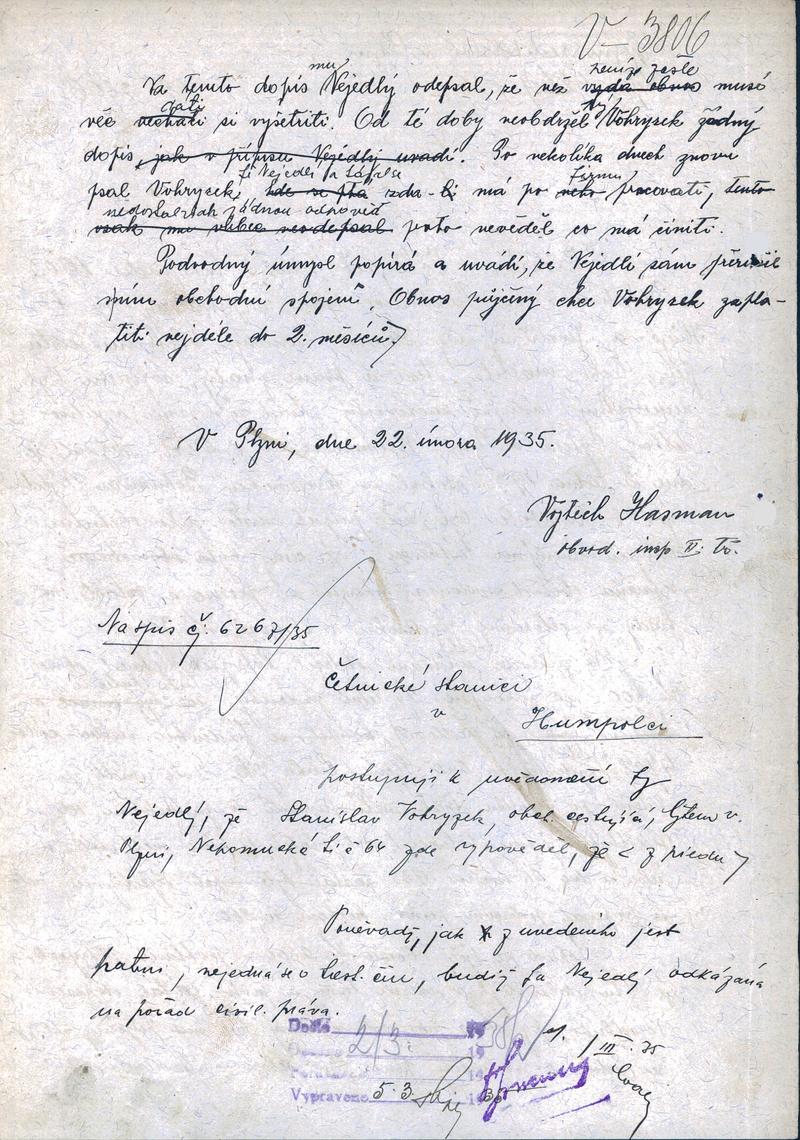 V-3806
mu
Na tento dopis Nejedlý odepsal, že než vydá obnos musí
nechati
věc si vyšetřiti. Od té doby neobdržel Vohryzek žádný
dopis, jak v přípisu Nejedlý uvádí. Po několika dnech znovu
fi Nejedlý
firmu
psal Vohryzek, zda-li má po pracovati, tento
nedostal však žádnou odpověď
však mu vůbec neodepsal proto nevěděl co má činiti.
Podvodný úmysl popírá a uvádí, že Nejedlý sám přerušil
s ním obchodní spojení. Obnos půjčený chce Vohryzek zapla-
titi nejdéle do 2. měsíců.
V Plzni, dne 22. února 1935.
Vojtěch Hasman
obvod. insp II. tř.
Na spis čj. 6267/35
Četnické stanici
v
Humpolci
postupuji k uvědomění fy
Nejedlý, že Stanislav Vohryzek, obch. cestující, bytem v
Plzni, Nepomucká tř č 64 zde vypověděl, že < z předu >
Poněvadž, jak z uvedeného jest
patrno, nejedná se o trest. čin, budiž fa Nejedlý odkázána
na pořad civil. práva.
Došlo 2/3. 19
19
Vypraveno 5.3. 1935
1/III 35